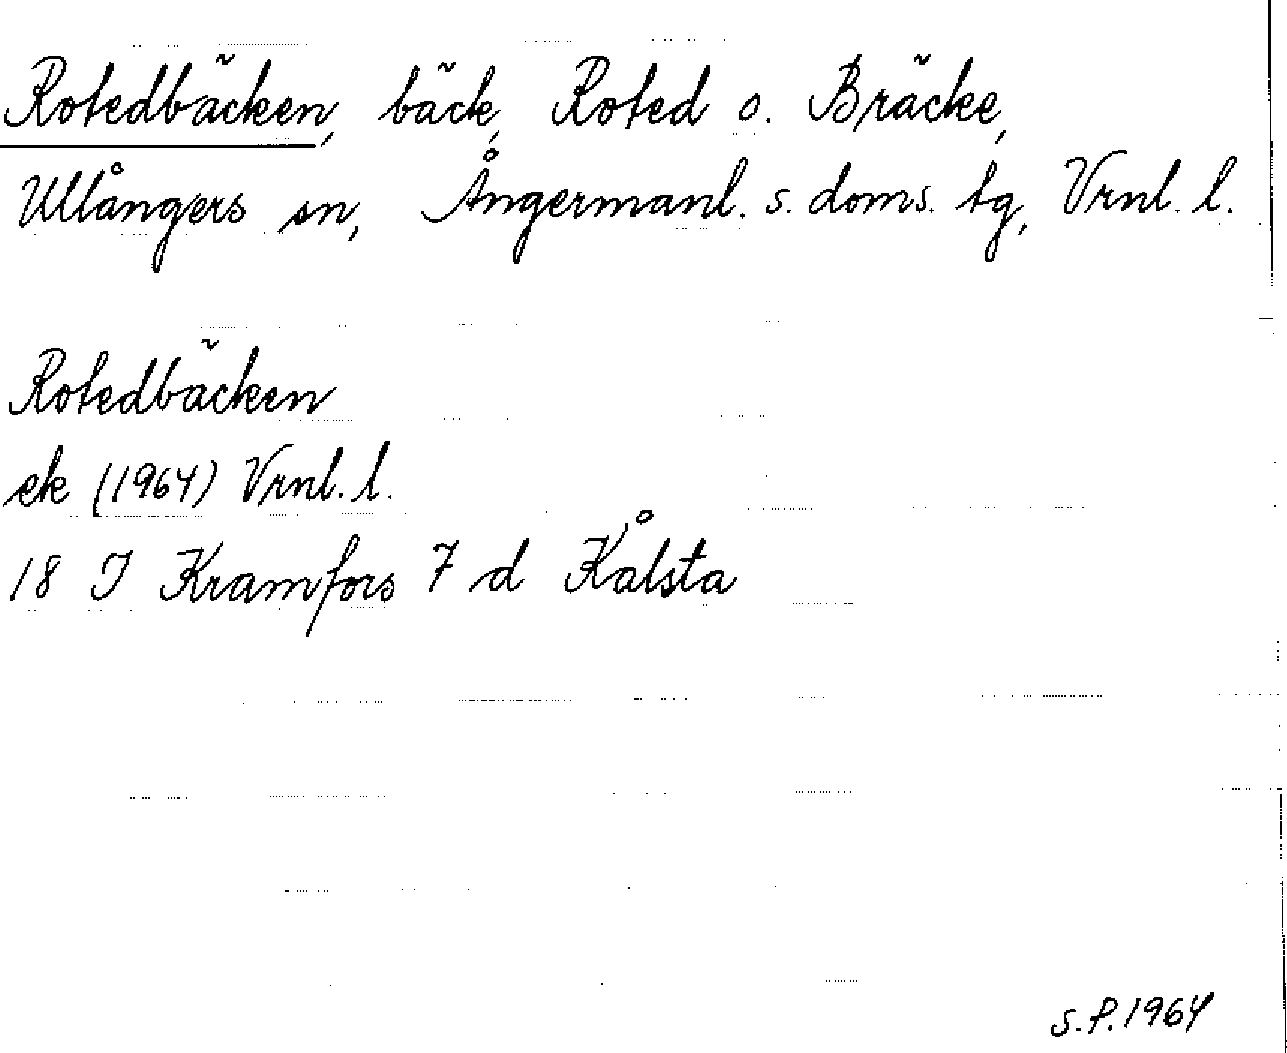 Rotedbäcken, bäck, Roted o. Bräcke,
Ullångers sn, Ångermanl. s. doms. tg, Vrnl. l.
Rotedbäcken
ek (1964) Vrnl. l.
18 I Kramfors 7 d Kålsta
S.P. 1964